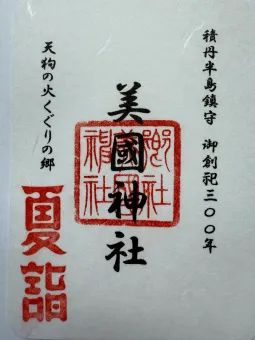 積丹半島鎮守 御創祀三〇〇年
美國神社
天狗の火くぐりの郷
夏詣